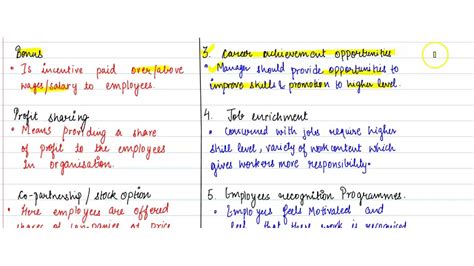 Bonus
• Is incentive paid over/above
wages/salary to employees.
Profit sharing
• Means providing a share
of profit to the employees
in organisation.
Co-partnership / stock option
• Here employees are offered
shares of companies at price
3. Career achievement opportunities
• Manager should provide opportunities to
improve skills & promotion to higher level.
4. Job enrichment
• Concerned with jobs require higher
skill level, variety of work content which
gives workers more responsibility.
5. Employees recognition Programmes.
• Employees feels Motivated and
feel that there work is recognised